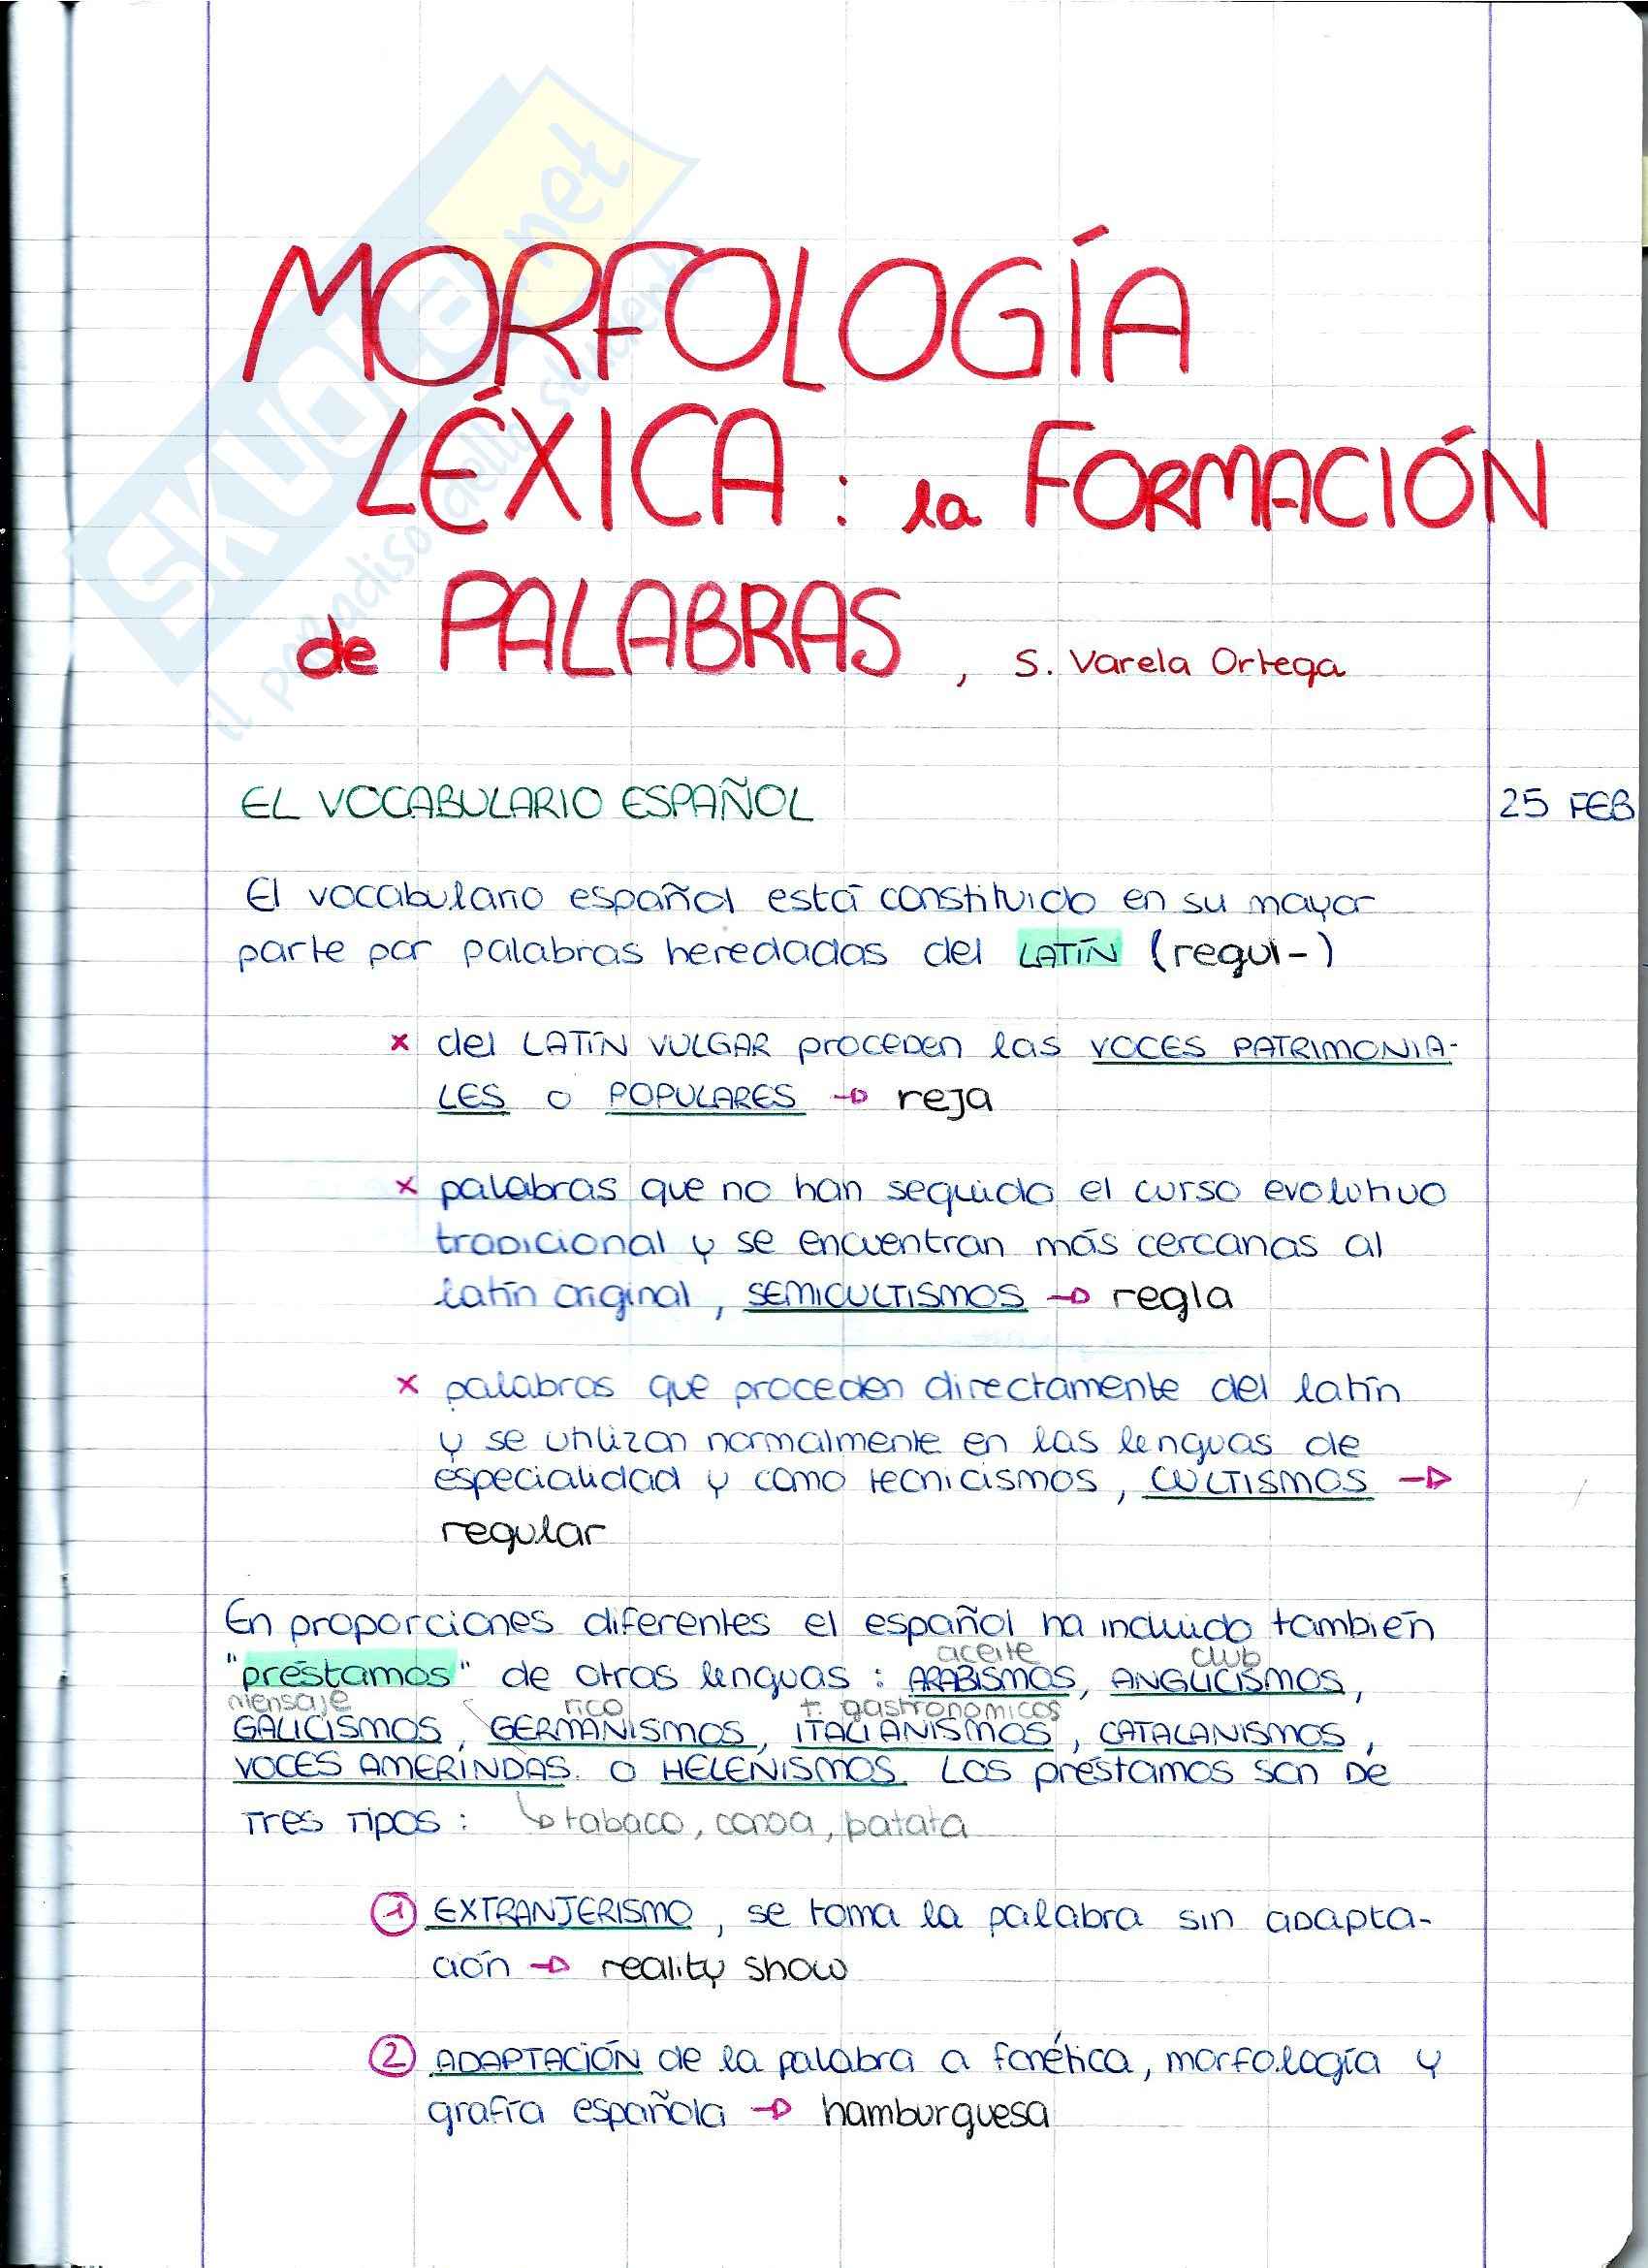 SKUOLA.net
il paradiso dello studente
MORFOLOGÍA
LÉXICA : la FORMACIÓN
de PALABRAS , S. Varela Ortega
EL VOCABULARIO ESPAÑOL
25 FEB
El vocabulario español está constituido en su mayor
parte por palabras heredadas del LATÍN (regui-)
x del LATÍN VULGAR proceden las VOCES PATRIMONIA-
LES o POPULARES → reja
x palabras que no han seguido el curso evolutivo
tradicional y se encuentran más cercanas al
latín original, SEMICULTISMOS → regla
x palabras que proceden directamente del latín
y se utilizan normalmente en las lenguas de
especialidad y como tecnicismos, CULTISMOS →
regular
En proporciones diferentes el español ha incluido también
aceite club
"préstamos" de otras lenguas : ARABISMOS, ANGLICISMOS,
mensaje rico t. gastronomicos
GALICISMOS, GERMANISMOS, ITALIANISMOS, CATALANISMOS,
VOCES AMERINDAS o HELENISMOS. Los préstamos son de
tres tipos : ↳ tabaco, canoa, patata
1 EXTRANJERISMO, se toma la palabra sin adapta-
ción → reality show
2 ADAPTACIÓN de la palabra a fonética, morfología y
grafía española → hamburguesa